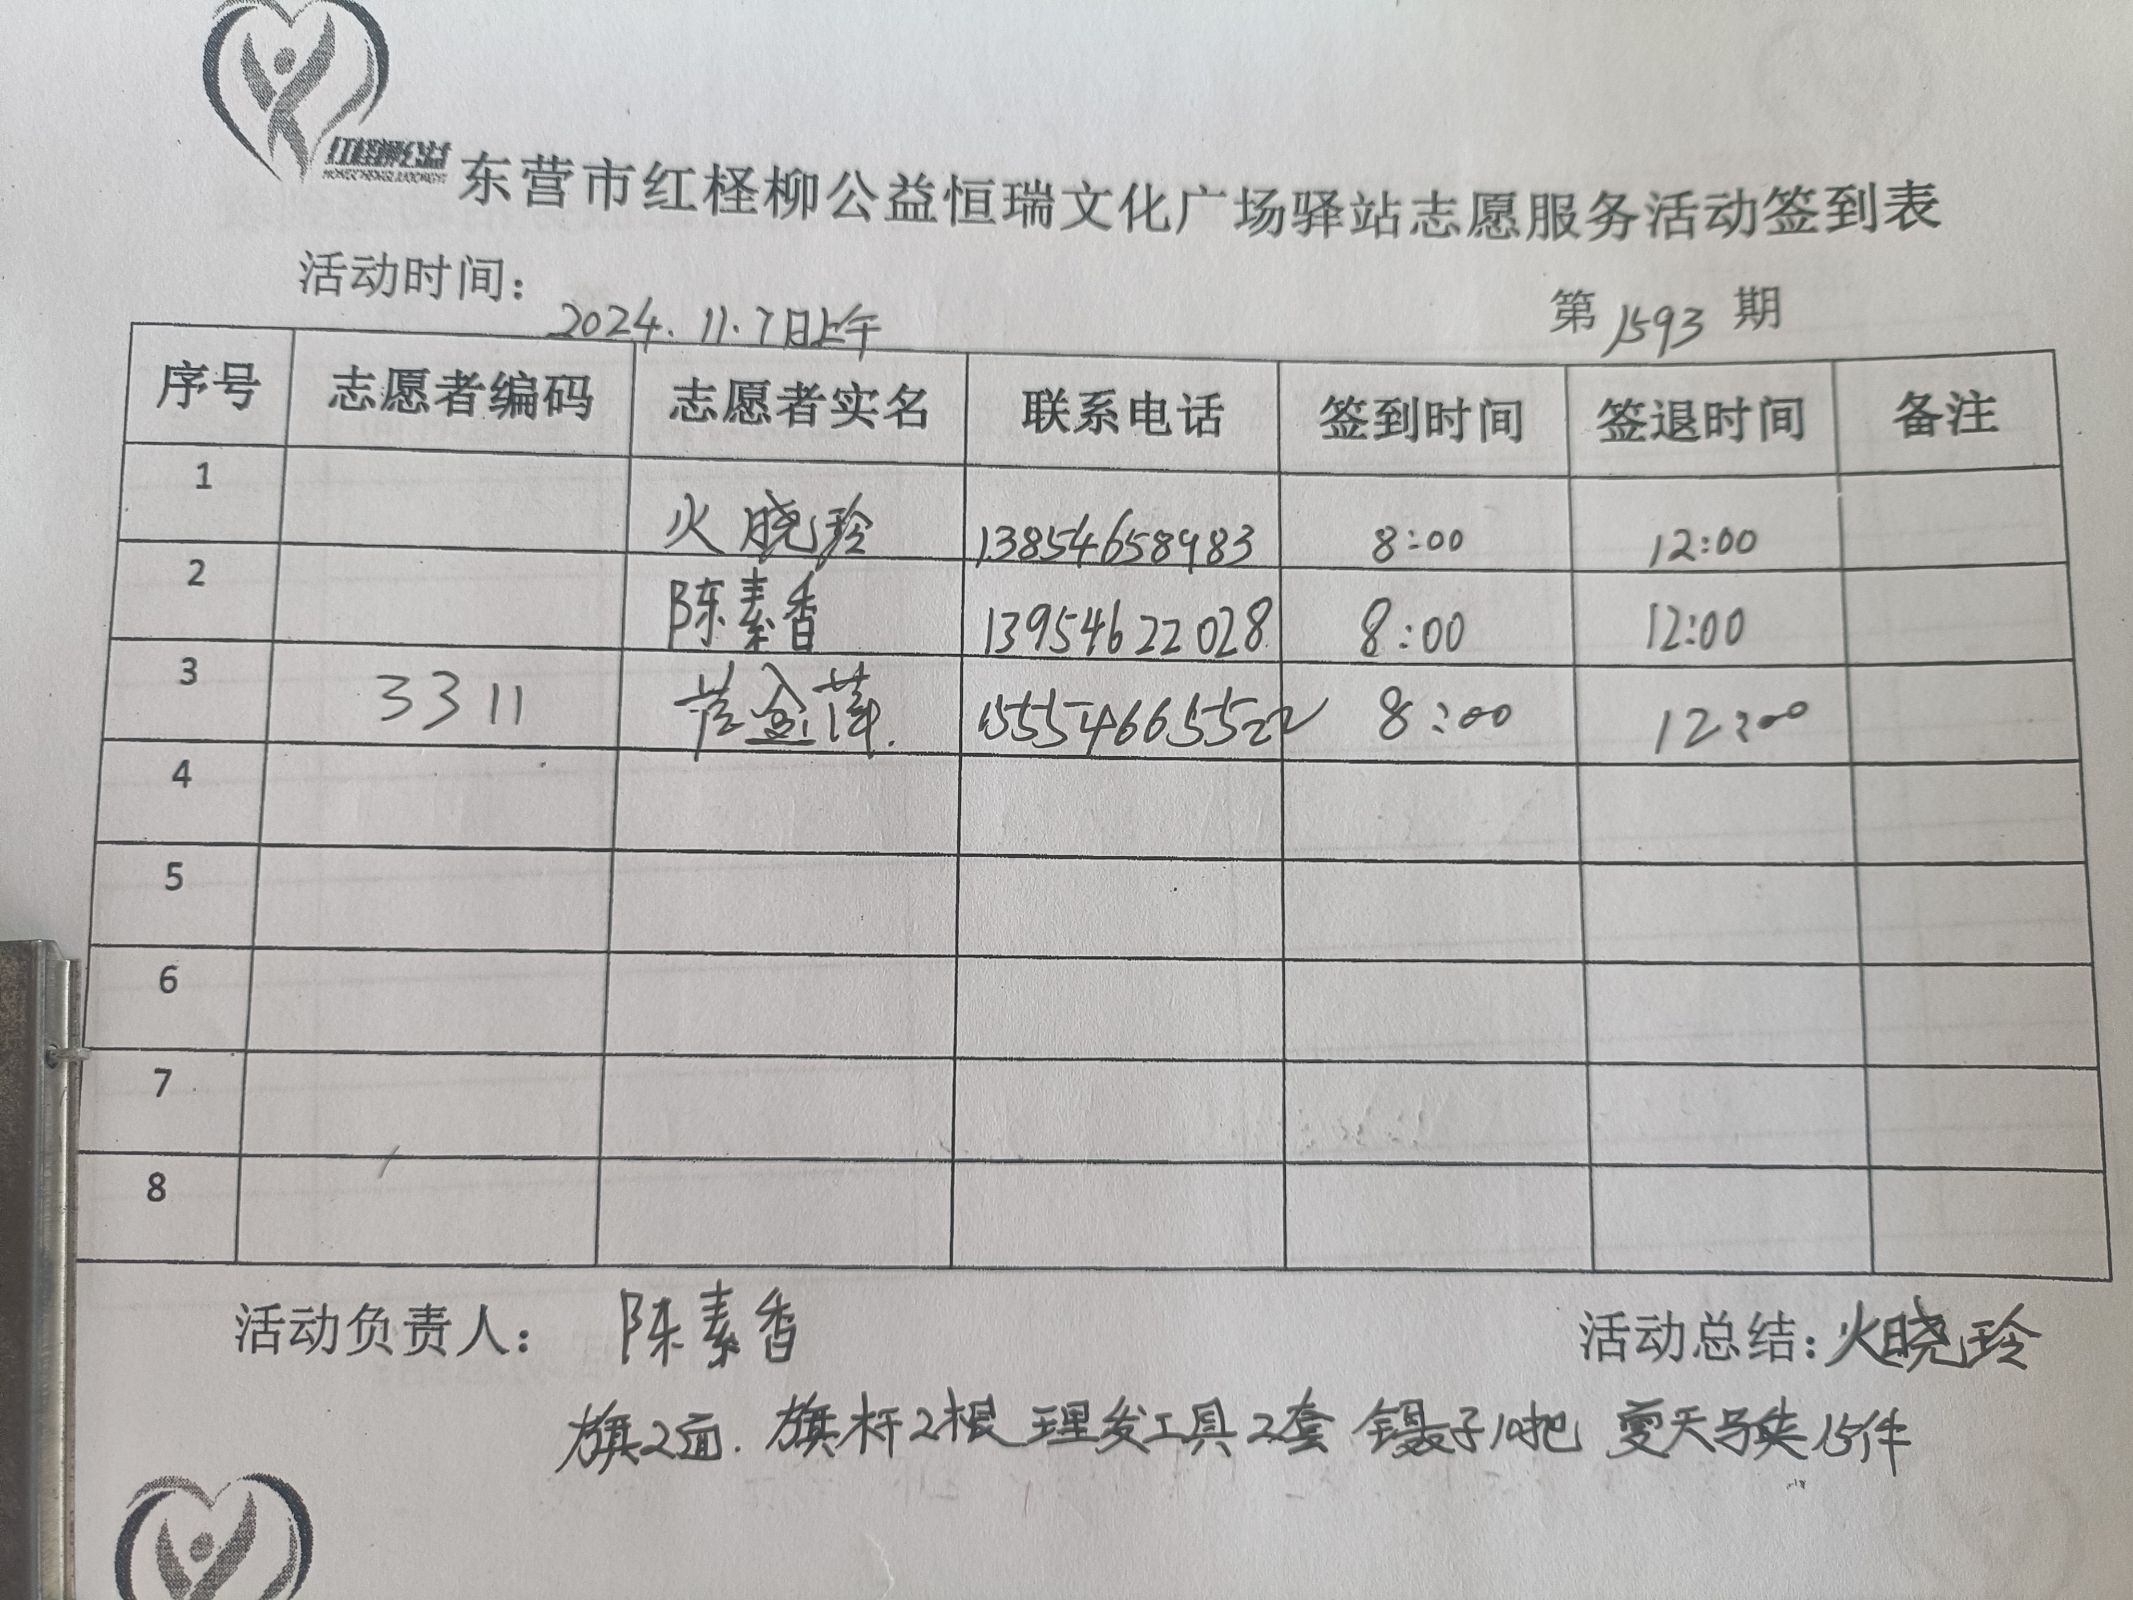 红柽柳公益
HONGCHENGLIUGONGYI
东营市红柽柳公益恒瑞文化广场驿站志愿服务活动签到表
活动时间：2024.11.7日上午 第1593期
序号 志愿者编码 志愿者实名 联系电话 签到时间 签退时间 备注
1 火晓玲 13854658983 8:00 12:00
2 陈素香 13954622028 8:00 12:00
3 3311 15554665522 8:00 12:00
4
5
6
7
8
活动负责人：陈素香 活动总结：火晓玲
旗2面.旗杆2根 理发工具2套 镊子10把 夏天马夹15件